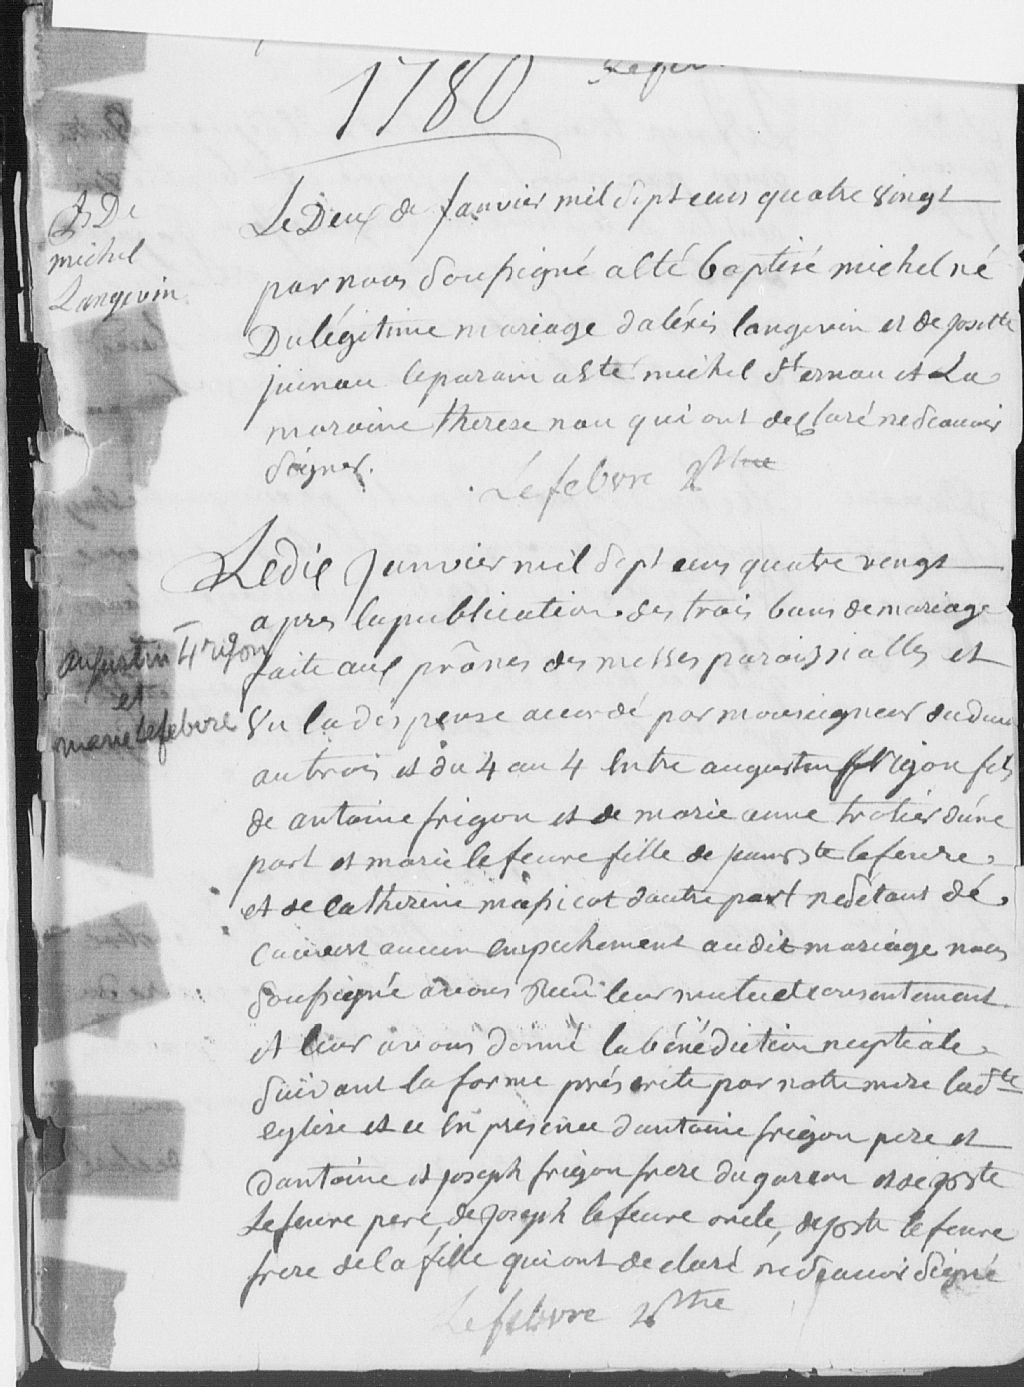 1780
B De
michel
Langevin
Le Deux de Janvier mil sept cens quatre vingt
par nous soussigné a été baptisé michel né
Du légitime mariage d'alexis langevin et de Josette
juinau le parain a été michel St ernau et La
maraine therese nau qui ont declaré ne scauoir
signer.
Lefebvre ptre
augustin Frigon
et
marie Lefebvre
Le dix Janvier mil sept cens quatre vengt
apres la publication des trois bans de mariage
faite aux prônes des messes paroissialles et
Vu la dispense accordé par monseigneur du deux
au trois et du 4 au 4 Entre augustin frigon fils
de antoine frigon et de marie anne trotier d'une
part et marie lefeuvre fille de jean bte lefeuvre
et de catherine massicot d'autre part ne s'étant dé
couvert aucun empechement audit mariage nous
soussigné avons recu leur mutuel consentement
et leur avons donné la bénédiction nuptiale
suivant la forme préscrite par notre mere la ste
eglise et ce En presence d'antoine frigon pere et
d'antoine et joseph frigon frere du garcon et de
Lefeuvre pere, de Joseph lefeuvre oncle, de lefeuvre
frere de la fille qui ont declaré ne scauoir signé
Lefebvre ptre